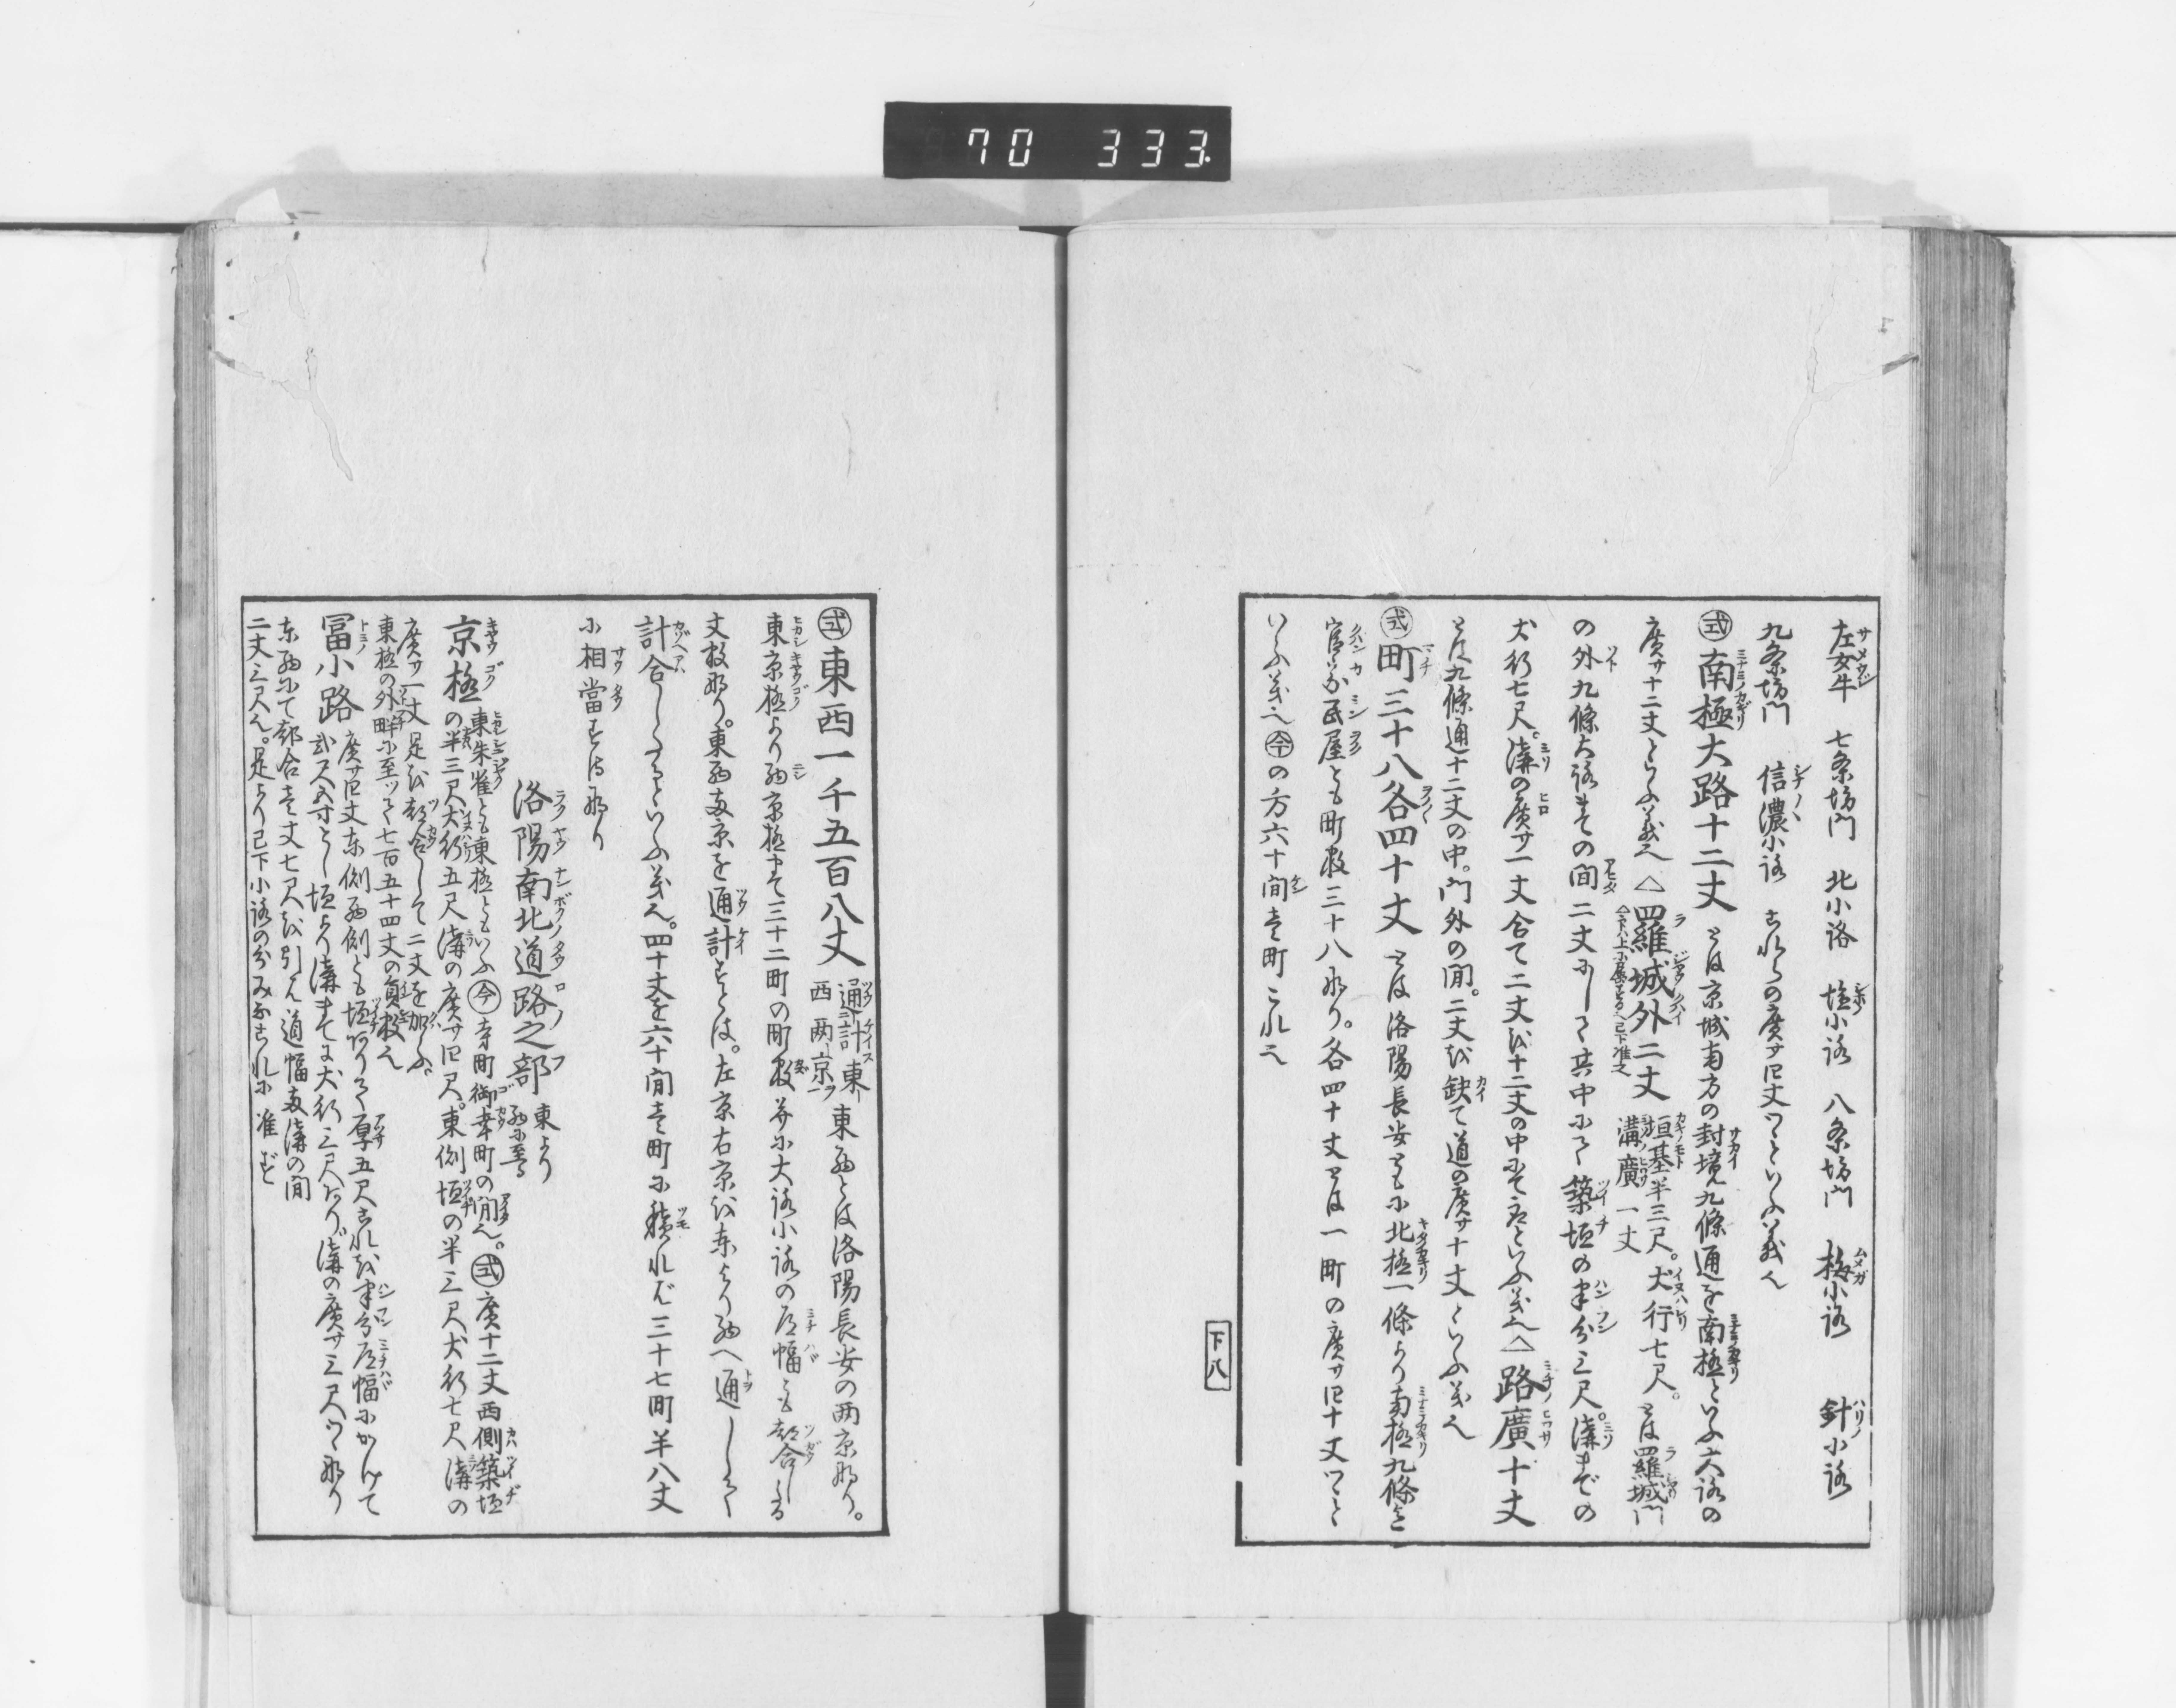 70 333
左女牛 七条坊門 北小路 塩小路 八条坊門 梅小路 針小路
九条坊門 信濃小路 これらの廣サ四丈つゝといふ義也
式 南極大路十二丈 とは京城南方の封境九條通を南極といふ大路の
廣サ十二丈といふ義也 △羅城外二丈 垣基半三尺。犬行七尺。溝廣一丈 とは羅城門
の外九條大路までの間二丈にして其中にて築垣の半分三尺。溝までの
犬行七尺。溝の廣サ一丈合て二丈を十二丈の中にて云といふ義也△路廣十丈
とは九條通十二丈の中。門外の間。二丈を缺て道の廣サ十丈といふ義也
式 町三十八各四十丈 とは洛陽長安とも小北極一條より南極九條まで
官家民屋とも町数三十八あり。各四十丈とは一町の廣サ四十丈つゝと
いふ義也 今の方六十間壱町これ也
下八
式 東西一千五百八丈 通計東西両京 東西とは洛陽長安の両京なり。
東京極より西京極まで三十二町の町数并に大路小路の道幅とも都合しるる
丈数なり。東西両京を通計すとは。左京右京を東より西へ通しして
計合しるといふ義也。四十丈を六十間壱町に積れば三十七町半八丈
小相當するなり
洛陽南北道路之部 東より西に至る
京極 東朱雀とも東極ともいふ 今 寺町御幸町の間也。式 廣十二丈西側築垣
の半三尺犬行五尺溝の廣サ四尺。東側垣の半三尺犬行七尺溝の
廣サ一丈是を都合して二丈を加ふ。
東極の外畔に至ッて七百五十四丈の員数也
冨小路 廣サ四丈東側西側とも垣ありて厚五尺これを半分道幅にかけて
弐尺五寸とし垣より溝まで犬行三尺あり。溝の廣サ三尺つゝなり
東西にて都合壱丈七尺を引く道幅両溝の間
二丈三尺也。是より已下小路の分みなこれに准ず